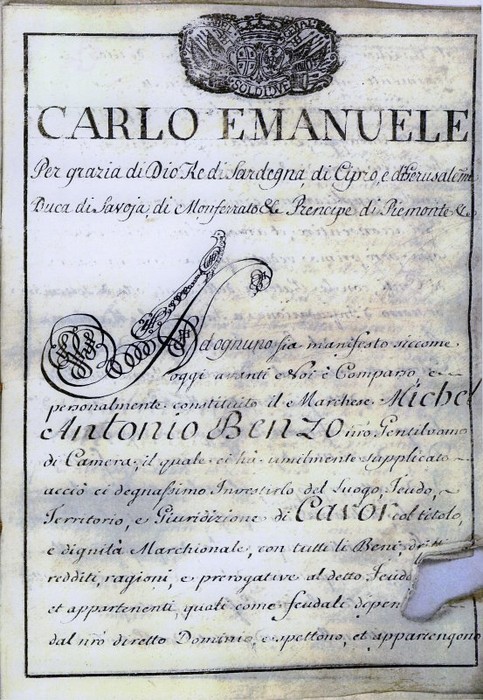 SOLD DVE
CARLO EMANUELE
Per grazia di Dio Re di Sardegna, di Cipro, e di Gerusalemme
Duca di Savoja, di Monferrato &c Prencipe di Piemonte &c
Ad ognuno sia manifesto siccome
oggi avanti Noi è Comparso, e
personalmente constituito il Marchese Michel
Antonio Benzo nrō Gentiluomo
di Camera, il quale ci hà umilmente supplicato
acciò ci degnassimo Investirlo del Luogo, Feudo,
Territorio, e Giuridizione di Cavor col titolo,
e dignità Marchionale, con tutti li Beni, dritti
redditi, ragioni, e prerogative al detto Feudo
et appartenenti, quali come feudali depen
dal nrō diretto Dominio, e spettono, et appartengono